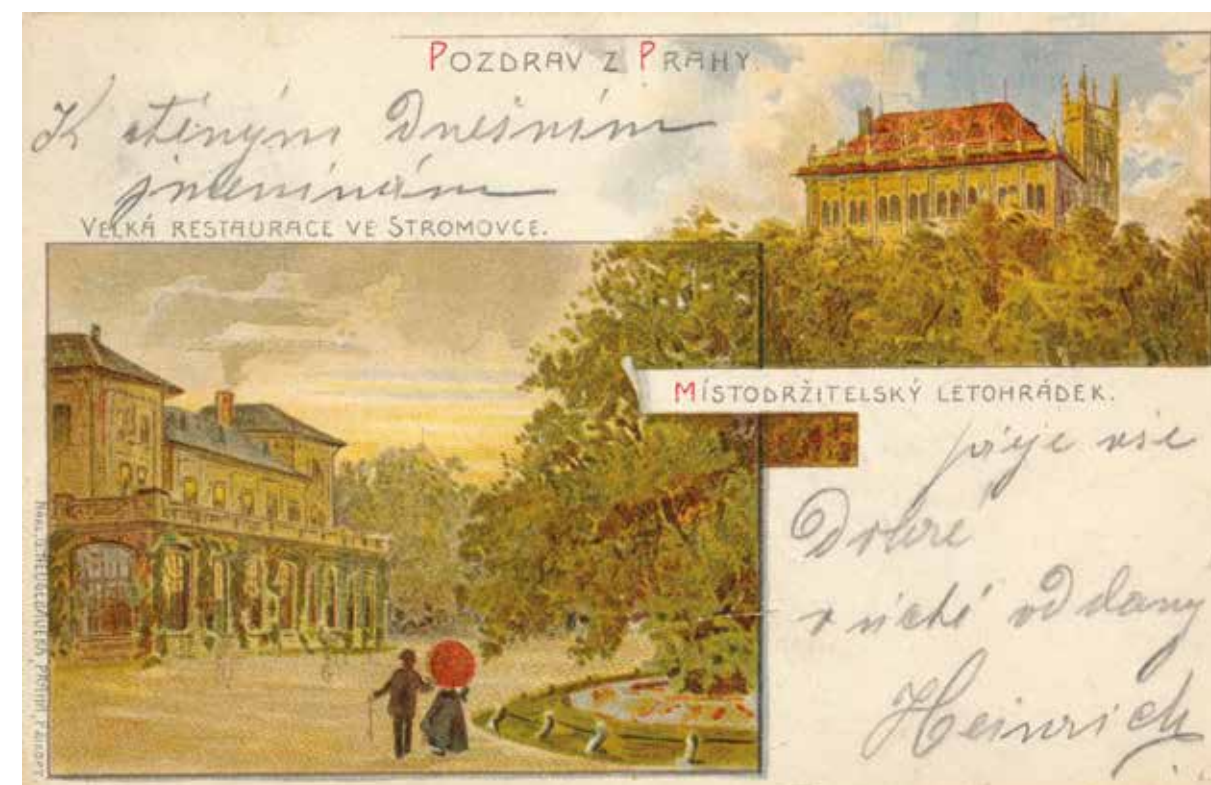 POZDRAV Z PRAHY.
K ctěným Dnešním
jmeninám
VELKÁ RESTAURACE VE STROMOVCE.
MÍSTODRŽITELSKÝ LETOHRÁDEK.
přeje vše
Dobré
v úctě oddaný
Heinrich